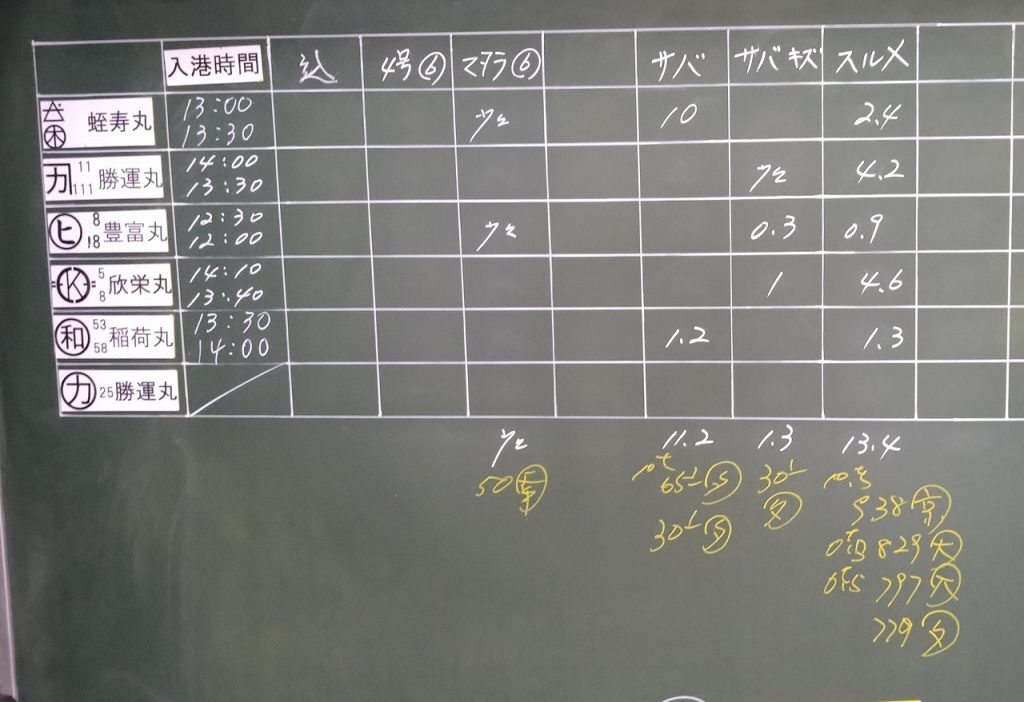 入港時間 込 4号⑥ マダラ⑥ サバ サバキズ スルメ
蛭寿丸 13:00 13:30 少々 10 2.4
カ 11 111 勝運丸 14:00 13:30 少々 4.2
ヒ 8 18 豊富丸 12:30 12:00 少々 0.3 0.9
K 5 8 欣栄丸 14:10 13:40 1 4.6
和 53 58 稲荷丸 13:30 14:00 1.2 1.3
カ 25 勝運丸
少々 11.2 1.3 13.4
50 65 30
938
30
829
797
779